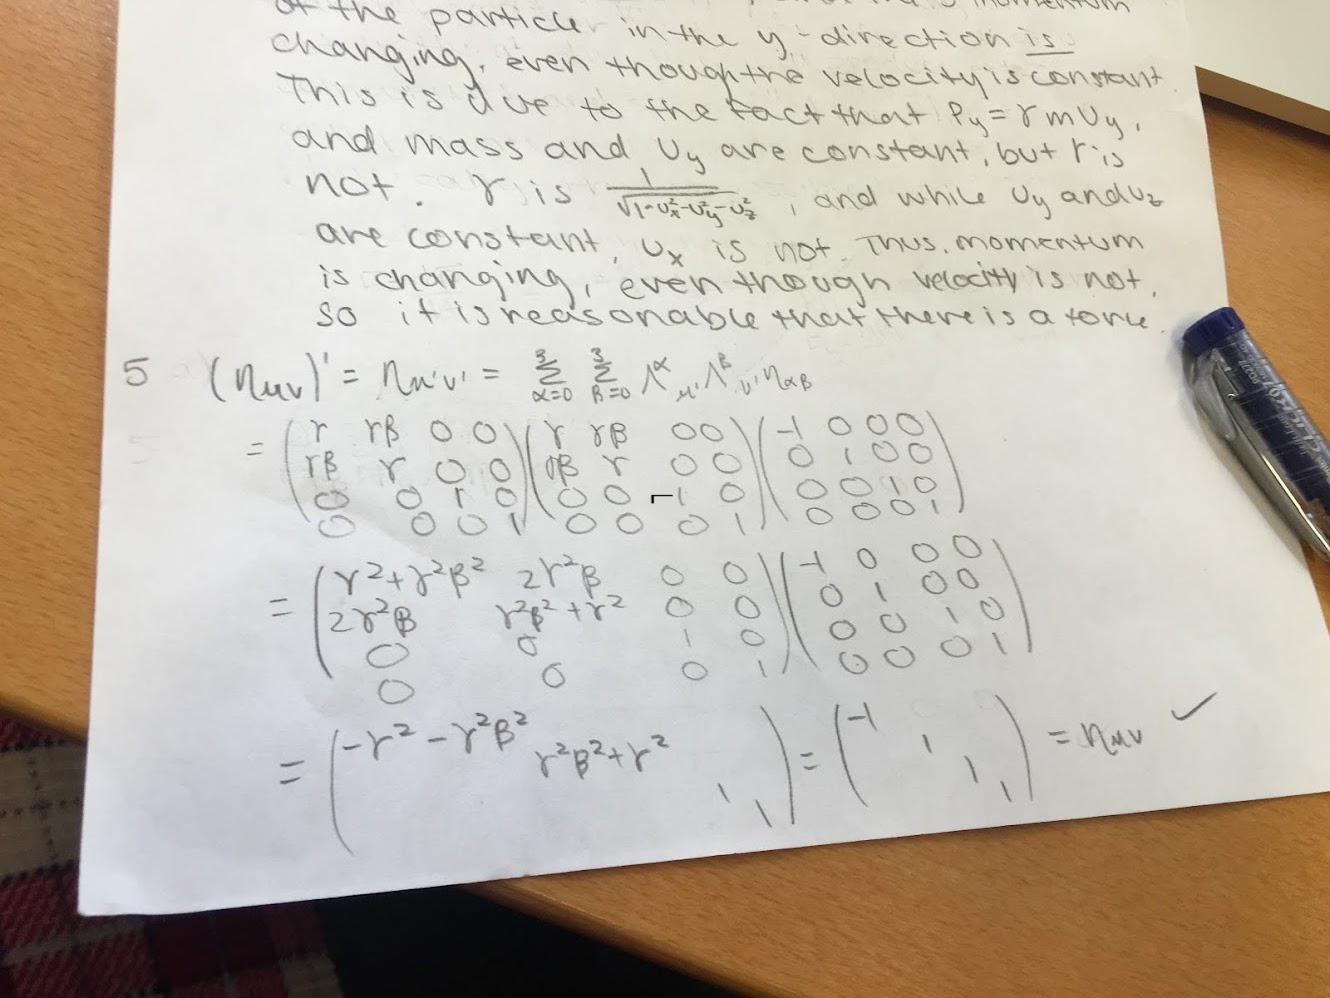 of the particle in the y-direction is
changing, even though the velocity is constant.
This is due to the fact that Py = γmUy,
and mass and Uy are constant, but γ is
not. γ is 1/√(1-Ux²-Uy²-Uz²), and while Uy and Uz
are constant, Ux is not. Thus, momentum
is changing, even though velocity is not,
so it is reasonable that there is a force.
5 (ημν)' = ημ'ν' = Σ³α=0 Σ³β=0 Λ^α μ' Λ^β ν' ηαβ
= (γ γβ 0 0)(γ γβ 0 0)(-1 0 0 0)
(γβ γ 0 0)(γβ γ 0 0)(0 1 0 0)
(0 0 1 0)(0 0 1 0)(0 0 1 0)
(0 0 0 1)(0 0 0 1)(0 0 0 1)
= (γ²+γ²β² 2γ²β 0 0)(-1 0 0 0)
(2γ²β γ²β²+γ² 0 0)(0 1 0 0)
(0 0 1 0)(0 0 1 0)
(0 0 0 1)(0 0 0 1)
= (-γ²-γ²β² γ²β²+γ² 1 1) = (-1 1 1 1) = ημν ✓